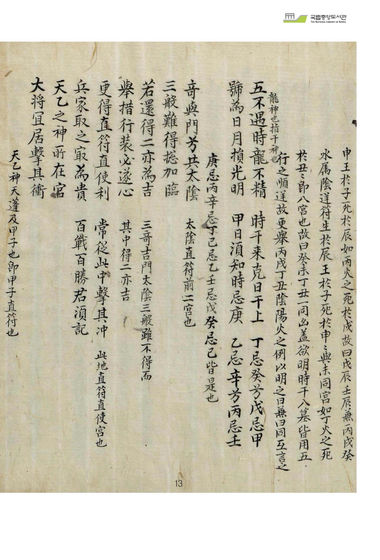 국립중앙도서관
申王於子死於辰如丙火之死於戌故曰戊辰壬辰無丙戌癸
水属陰逆符生於辰王於子死於申申與未同宮如丁火之死
於丑丑卽八宮也故曰癸未丁丑一同凶盖欲明時干入墓皆用五
行之順逆故更擧丙戌丁丑陰陽火之例以明之曰無曰同互言之
龍神也指干神也
五不遇時龍不精 時干来克日干上 丁忌癸兮戊忌甲
號為日月損光明 甲日湏知時忌庚 乙忌辛兮丙忌壬
庚忌丙辛忌丁己忌乙壬忌戊癸忌己皆是也
奇與門兮共太陰 太陰直符前二宮也
三般難得捴加臨 三奇吉門太陰三般雖不得而
若還得二亦為吉 其中得二亦吉
擧措行装必遂心
更得直符直使利 常從此中擊其冲 此地直符直使宮也
兵家取之取為貴 百戰百勝君湏記
天乙之神所在宮
大將宜居擊其衝
天乙神天蓬及甲子也卽甲子直符也
13